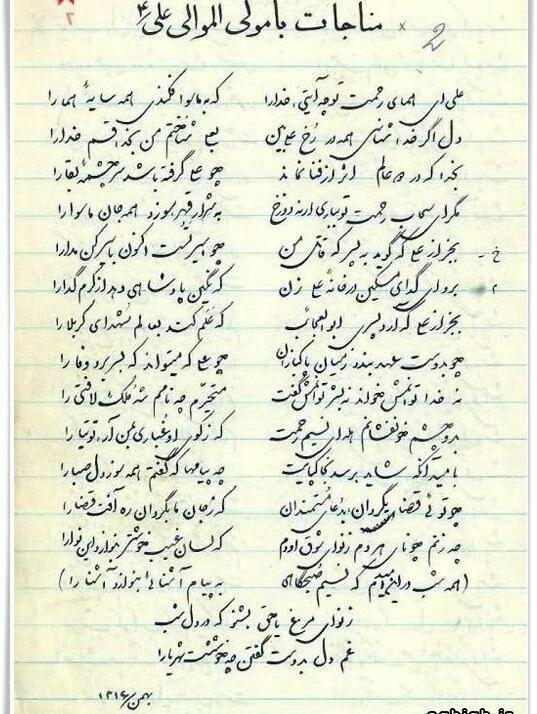 مناجات با مولی الموالی علی ع
2
علی ای همای رحمت تو چه آیتی خدارا که به ماسوا فکندی همه سایهٔ هما را
دل اگر خداشناسی همه در رخ علی بین بعلی شناختم من بخدا قسم خدا را
بخدا که در دو عالم اثر از فنا نماند چو علی گرفته باشد سر چشمهٔ بقا را
مگر ای سحاب رحمت تو بباری ارنه دوزخ به شرار قهر سوزد همه جان ماسوا را
خ - بجز از علی که گوید به پسر که قاتل من چو اسیر تست اکنون باسیر کن مدارا
م برو ای گدای مسکین در خانهٔ علی زن که نگین پادشاهی دهد از کرم گدا را
بجز از علی که آرد پسری ابوالعجائب که علم کند بعالم شهدای کربلا را
چو بدوست عهد بندد ز میان پاکبازان چو علی که میتواند که بسر برد وفا را
نه خدا توانمش خواند نه بشر توانمش گفت متحیرم چه نامم شه ملک لافتی را
بدو چشم خونفشانم هله ای نسیم رحمت که ز کوی او غباری بمن آر توتیا را
بامید آنکه شاید برسد بخاکپایت چه پیامها که گفتم همه سوز دل صبا را
چو توئی قضا بگردان بدعای مستمندان که ز جان ما بگردان ره آفت قضا را
چه زنم چو نای هر دم ز نوای شوق او دم که لسان غیب خوشتر بنوازد این نوا را
(همه شب در این امیدم که نسیم صبحگاهی به پیام آشنائی بنوازد آشنا را)
ز نوای مرغ یا حق بشنو که در دل شب
غم دل بدوست گفتن چه خوشست شهریارا
بهمن